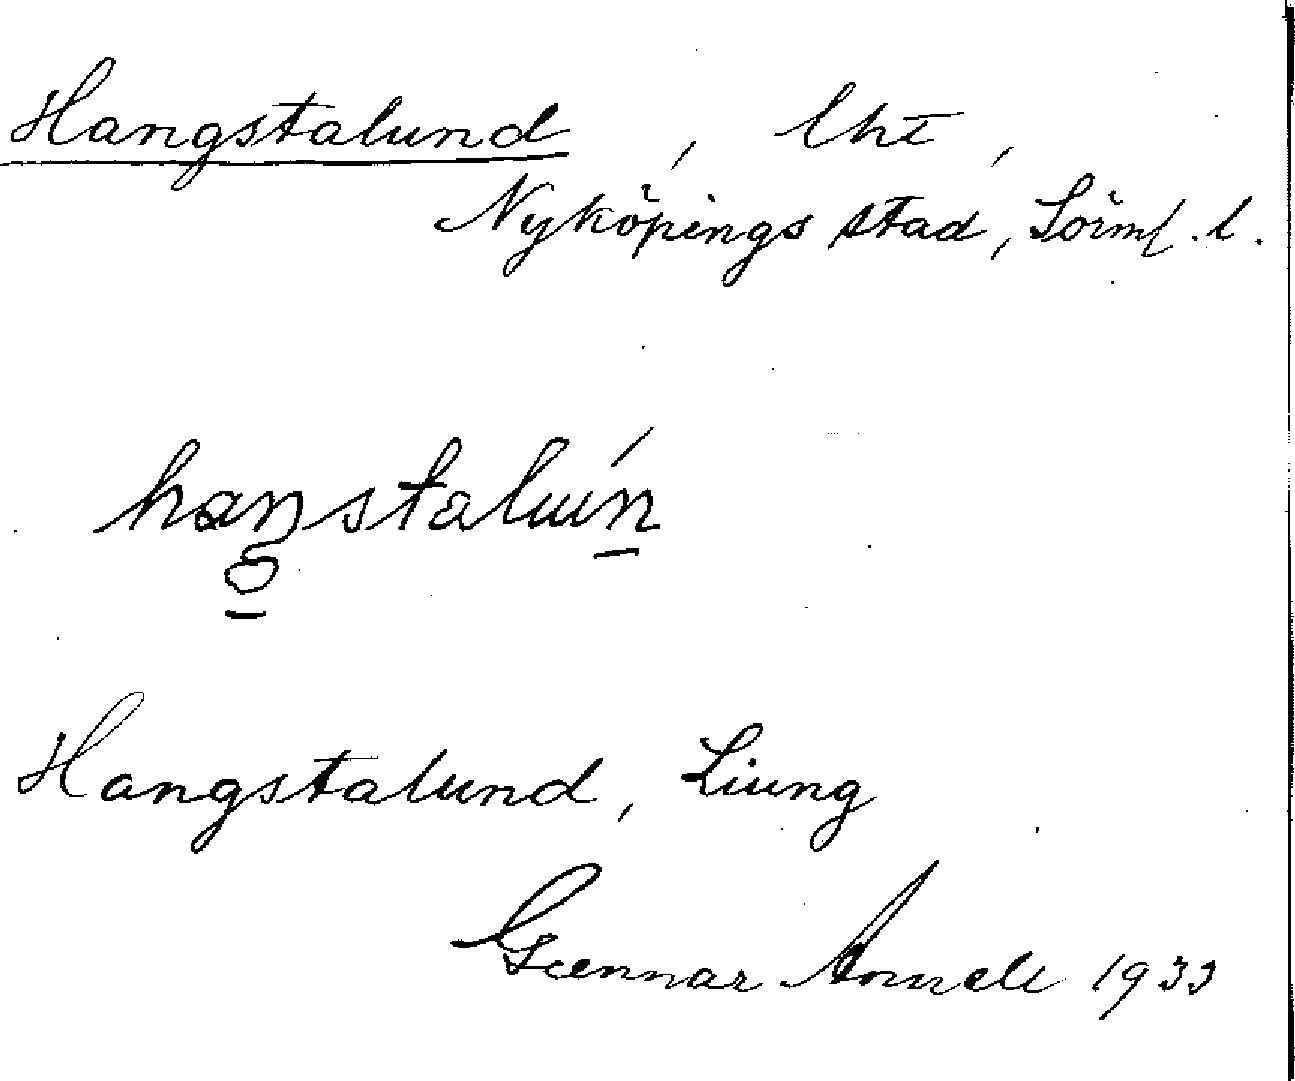 Hangstalund, lht,
Nyköpings stad, Sörml. l.
haŋstalun
Hangstalund, Liung
Gunnar Annell 1933